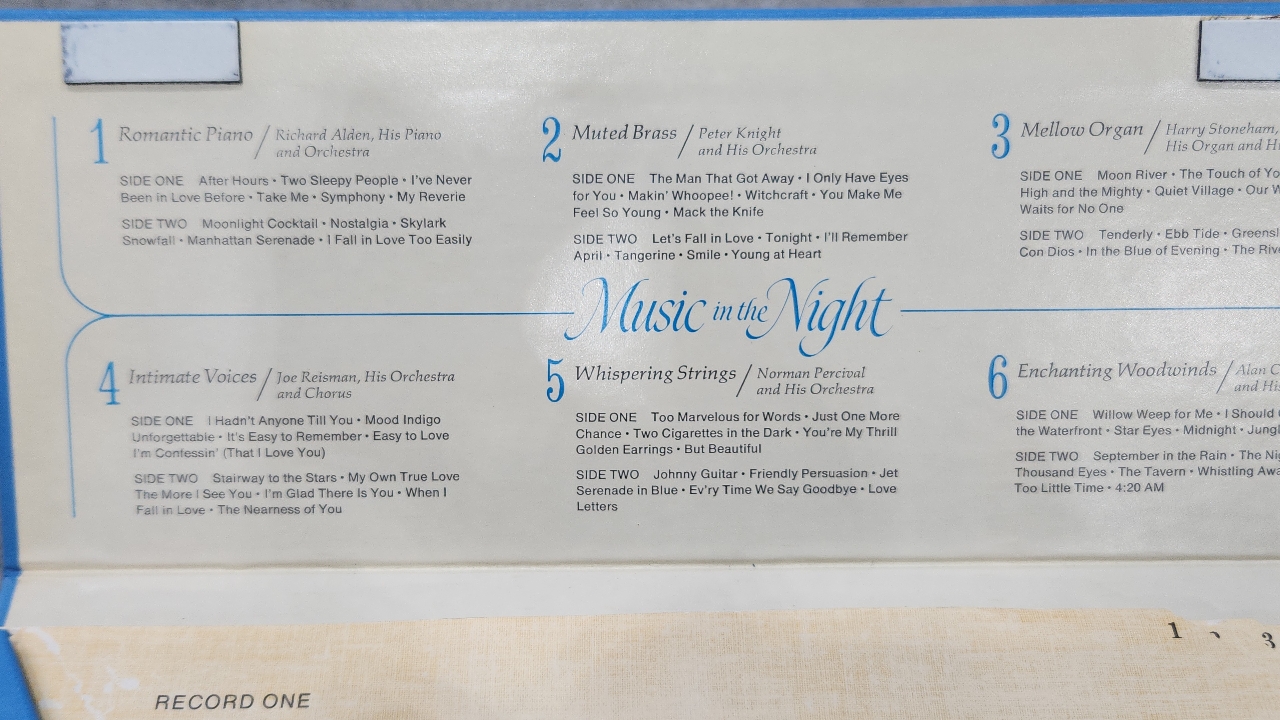 1 Romantic Piano / Richard Alden, His Piano
and Orchestra
SIDE ONE After Hours • Two Sleepy People • I've Never
Been in Love Before • Take Me • Symphony • My Reverie
SIDE TWO Moonlight Cocktail • Nostalgia • Skylark
Snowfall • Manhattan Serenade • I Fall in Love Too Easily
2 Muted Brass / Peter Knight
and His Orchestra
SIDE ONE The Man That Got Away • I Only Have Eyes
for You • Makin' Whoopee! • Witchcraft • You Make Me
Feel So Young • Mack the Knife
SIDE TWO Let's Fall in Love • Tonight • I'll Remember
April • Tangerine • Smile • Young at Heart
3 Mellow Organ / Harry Stoneham,
His Organ and
SIDE ONE Moon River • The Touch of
High and the Mighty • Quiet Village • Our
Waits for No One
SIDE TWO Tenderly • Ebb Tide •
Con Dios • In the Blue of Evening • The
Music in the Night
4 Intimate Voices / Joe Reisman, His Orchestra
and Chorus
SIDE ONE I Hadn't Anyone Till You • Mood Indigo
Unforgettable • It's Easy to Remember • Easy to Love
I'm Confessin' (That I Love You)
SIDE TWO Stairway to the Stars • My Own True Love
The More I See You • I'm Glad There Is You • When I
Fall in Love • The Nearness of You
5 Whispering Strings / Norman Percival
and His Orchestra
SIDE ONE Too Marvelous for Words • Just One More
Chance • Two Cigarettes in the Dark • You're My Thrill
Golden Earrings • But Beautiful
SIDE TWO Johnny Guitar • Friendly Persuasion • Jet
Serenade in Blue • Ev'ry Time We Say Goodbye • Love
Letters
6 Enchanting Woodwinds / Alan
and
SIDE ONE Willow Weep for Me • I Should
the Waterfront • Star Eyes • Midnight •
SIDE TWO September in the Rain • The
Thousand Eyes • The Tavern • Whistling
Too Little Time • 4:20 AM
1 3
RECORD ONE